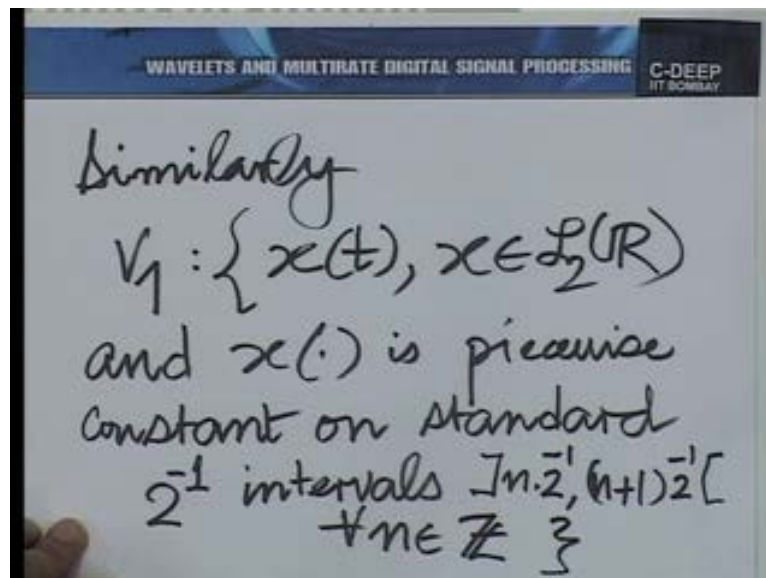 WAVELETS AND MULTIRATE DIGITAL SIGNAL PROCESSING
C-DEEP
IIT BOMBAY
Similarly
V₁ : { x(t), x ∈ ℒ₂(ℝ)
and x(·) is piecewise
constant on standard
2⁻¹ intervals ]n.2⁻¹, (n+1)2⁻¹[
∀n ∈ ℤ }